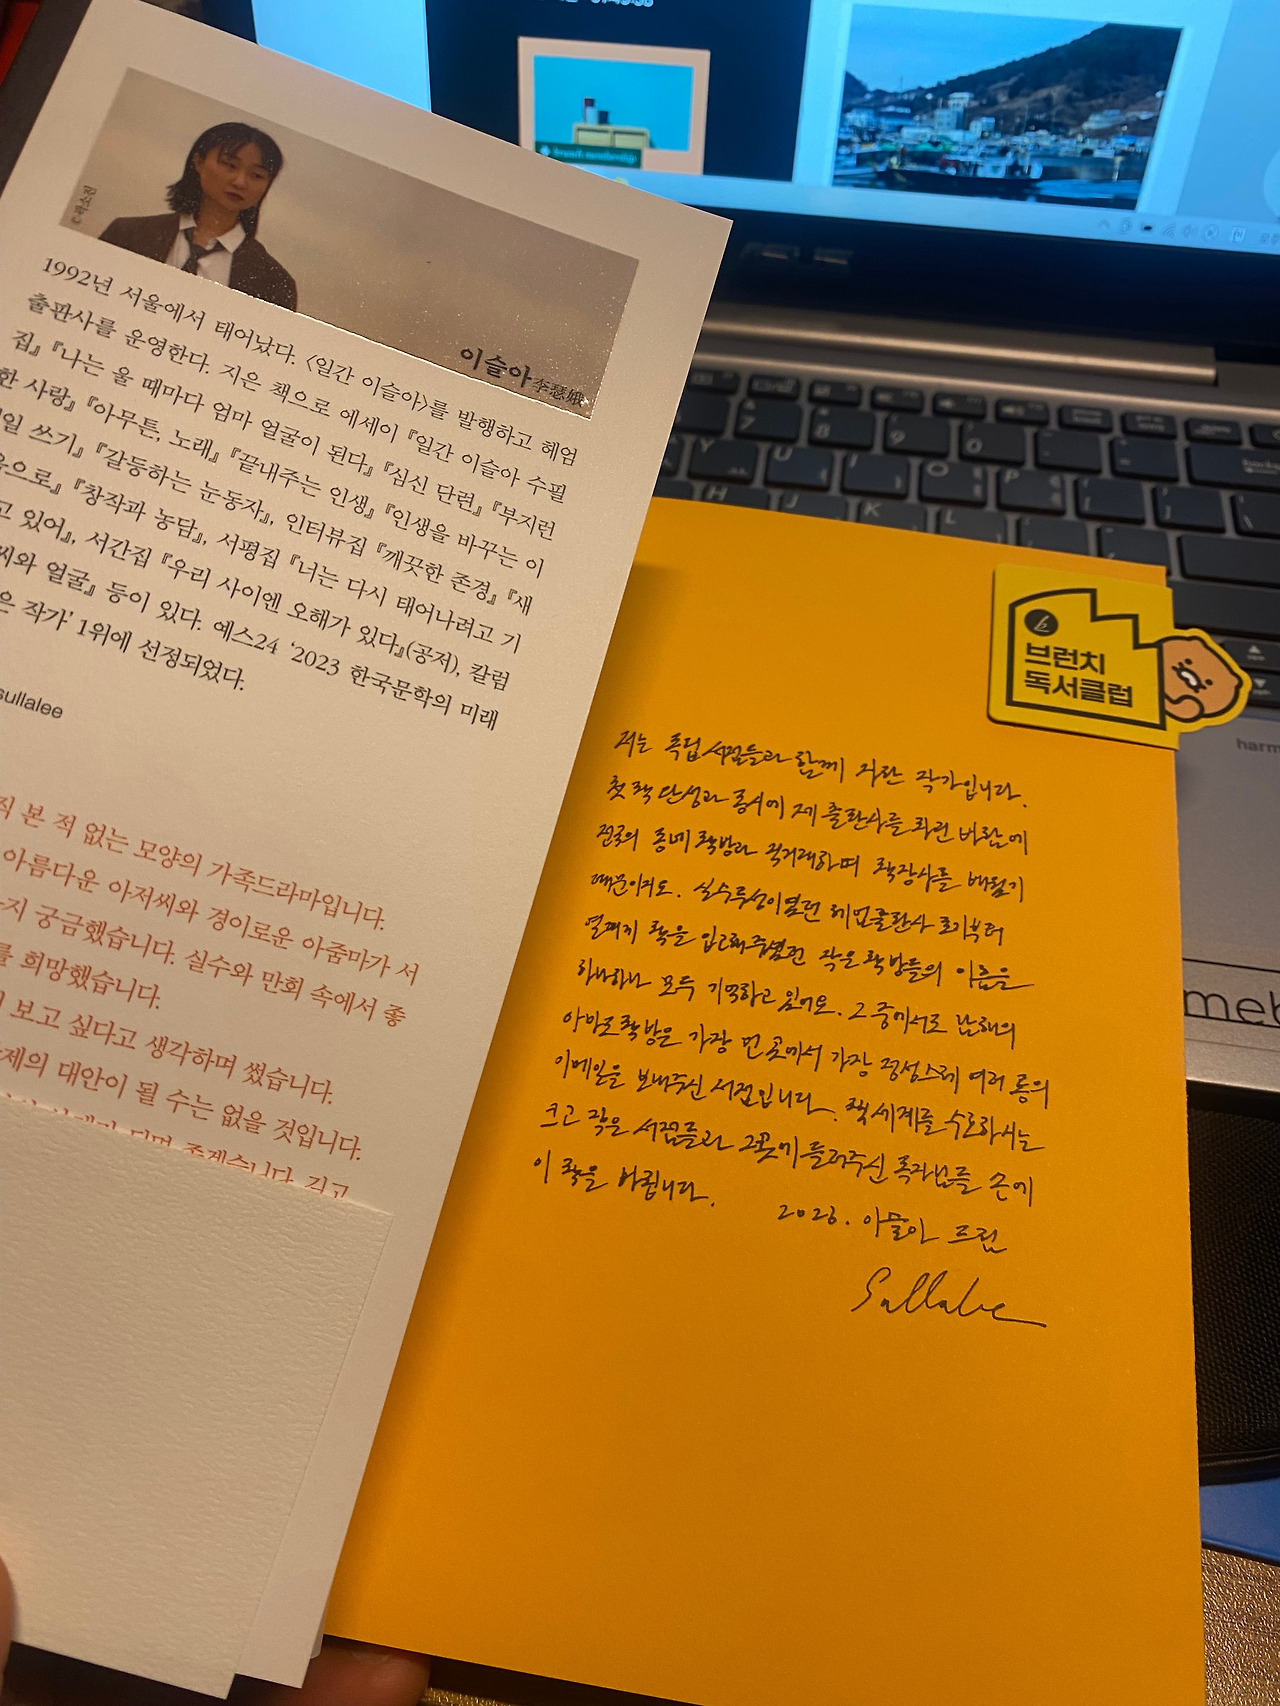 brunch membership
전석환©
이슬아 李瑟娥
1992년 서울에서 태어났다. 〈일간 이슬아〉를 발행하고 헤엄
출판사를 운영한다. 지은 책으로 에세이 『일간 이슬아 수필
집』 『나는 울 때마다 엄마 얼굴이 된다』 『심신 단련』 『부지런
한 사랑』 『아무튼, 노래』 『끝내주는 인생』 『인생을 바꾸는 이
일 쓰기』 『갈등하는 눈동자』, 인터뷰집 『깨끗한 존경』 『새
음으로』 『창작과 농담』, 서평집 『너는 다시 태어나려고 기
고 있어』, 서간집 『우리 사이엔 오해가 있다』(공저), 칼럼
씨와 얼굴』 등이 있다. 예스24 ‘2023 한국문학의 미래
은 작가’ 1위에 선정되었다.
sullalee
직 본 적 없는 모양의 가족드라마입니다.
아름다운 아저씨와 경이로운 아줌마가 서
지 궁금했습니다. 실수와 만회 속에서 좋
를 희망했습니다.
보고 싶다고 생각하며 썼습니다.
제의 대안이 될 수는 없을 것입니다.
되면 좋겠습니다. 길고
b
브런치
독서클럽
저는 독립서점들과 함께 자란 작가입니다.
첫 책 탄생과 동시에 제 출판사를 차린 바람에
전국의 동네 책방과 직거래하며 책장사를 배웠기
때문이지요. 실수투성이였던 헤엄출판사 초기부터
열 권씩 책을 입고해주셨던 작은 책방들의 이름을
하나하나 모두 기억하고 있어요. 그 중에서도 남해의
아마도책방은 가장 먼 곳에서 가장 정성스레 여러 통의
이메일을 보내주신 서점입니다. 책 세계를 수호하시는
크고 작은 서점들과 그곳에 들러주신 독자님들 손에
이 책을 바칩니다.
2023. 이슬아 드림
Sullalee
7
8
9
0
Y
U
I
O
P
H
J
K
L